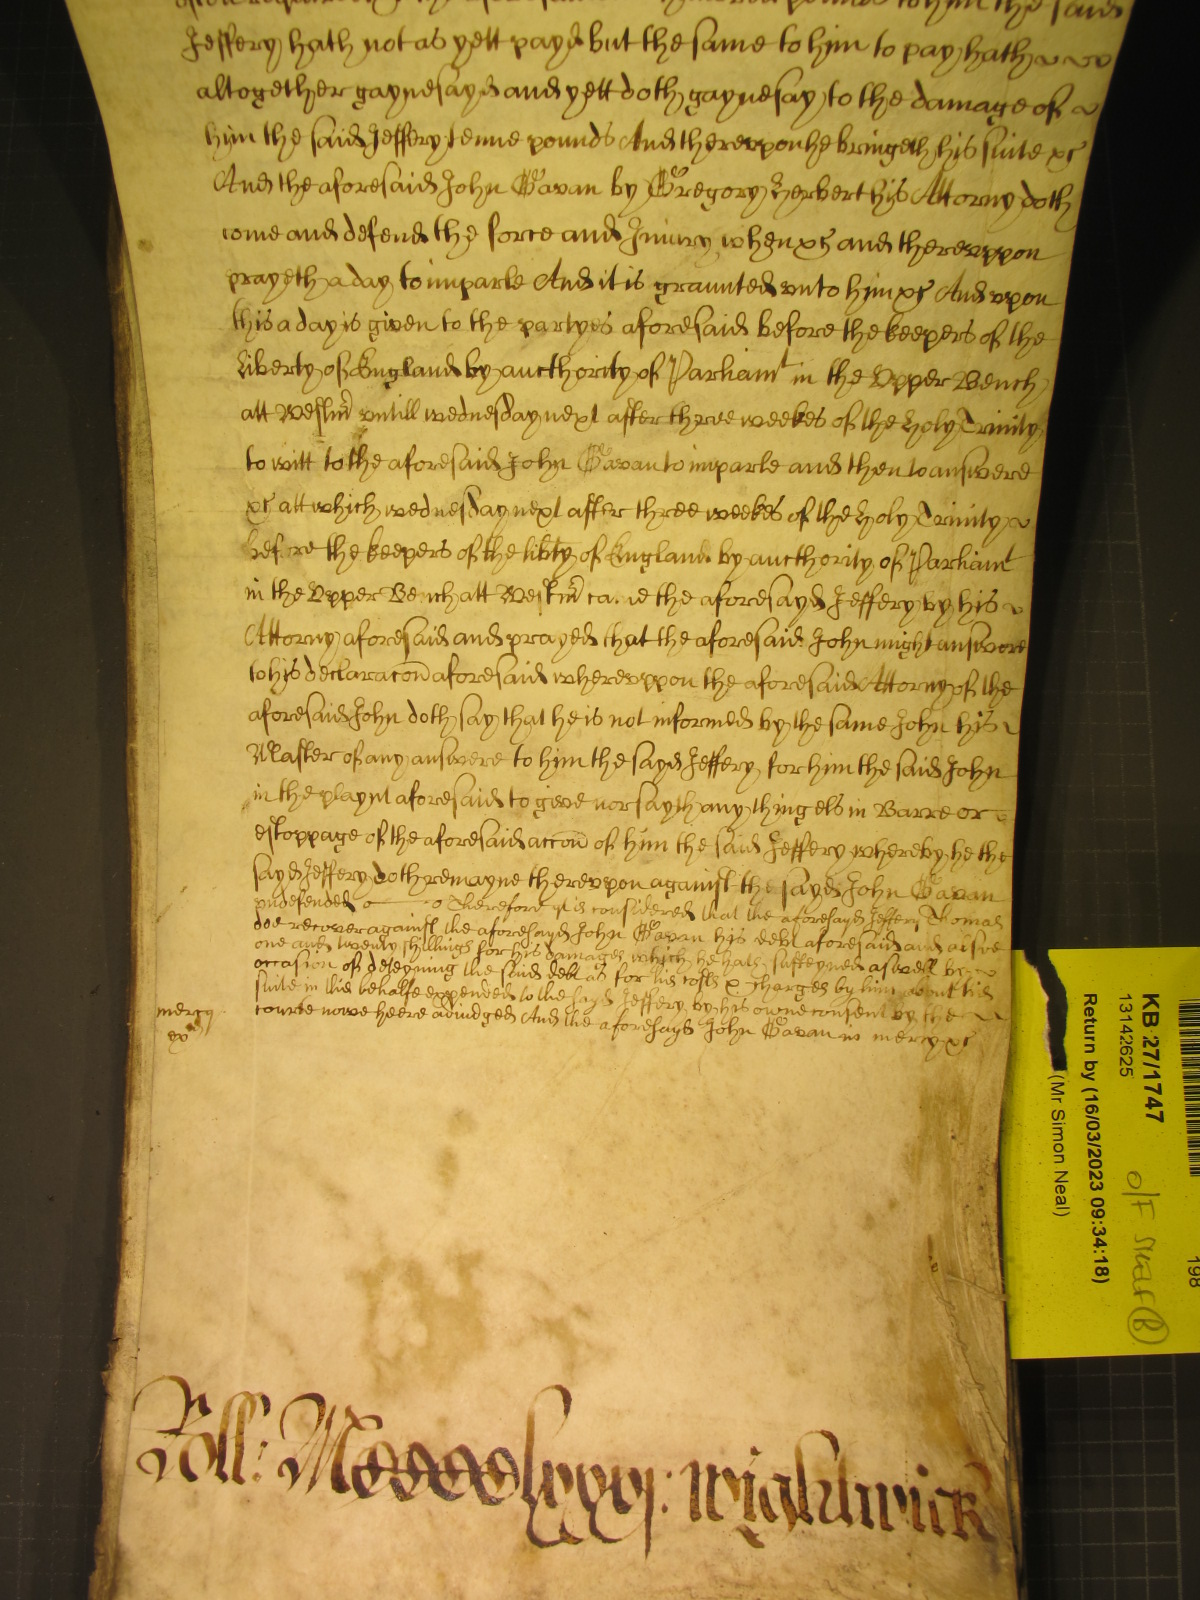 Jeffery hath not as yett payd but the same to him to pay hath
altogether gaynesayd and yett doth gaynesay to the damage of
him the said Jeffery tenne pounds And thereuppon he bringeth his suite &c
And the aforesaid John Gavan by Gregory Herbert his Attorny doth
come and defend the force and Iniury when &c and thereuppon
prayeth a day to imparle And it is graunted unto him &c And upon
this a day is given to the partyes aforesaid before the keepers of the
Liberty of England by aucthority of Parliamt in the Upper Bench
att Westmr untill wednesday next after three weekes of the Holy Trinity
to witt to the aforesaid John Gavan to imparle and then to answere
&c att which wednesday next after three weekes of the Holy Trinity
before the keepers of the libty of England by aucthority of Parliamt
in the Upper Bench att Westmr came the aforesayd Jeffery by his
Attorny aforesaid and prayed that the aforesaid John might answere
to his declaracon aforesaid whereuppon the aforesaid Attorny of the
aforesaid John doth say that he is not informed by the same John his
Master of any answere to him the sayd Jeffery for him the said John
in the playnt aforesaid to geve nor sayth any thing els in Barre or
estoppage of the aforesaid accon of him the said Jeffery whereby he the
sayd Jeffery doth remayne thereupon against the sayd John Gavan
undefended Therefore it is considered that the aforesayd Jeffery Thomas
doe recover against the aforesayd John Gavan his debt aforesaid and alsoe
one and twenty shillings for his damages which he hath susteyned aswell by
occasion of deteyning the said debt as for his costs & charges by him about his
suite in this behalfe expended to the sayd Jeffery by his owne consent by the
mercy
courte nowe heere adiudged And the aforesayd John Gavan in mercy &c
Roll: MCCCClxxxj: Wightwick
KB 27/1747
13142625
Return by (16/03/2023 09:34:18)
(Mr Simon Neal)
198